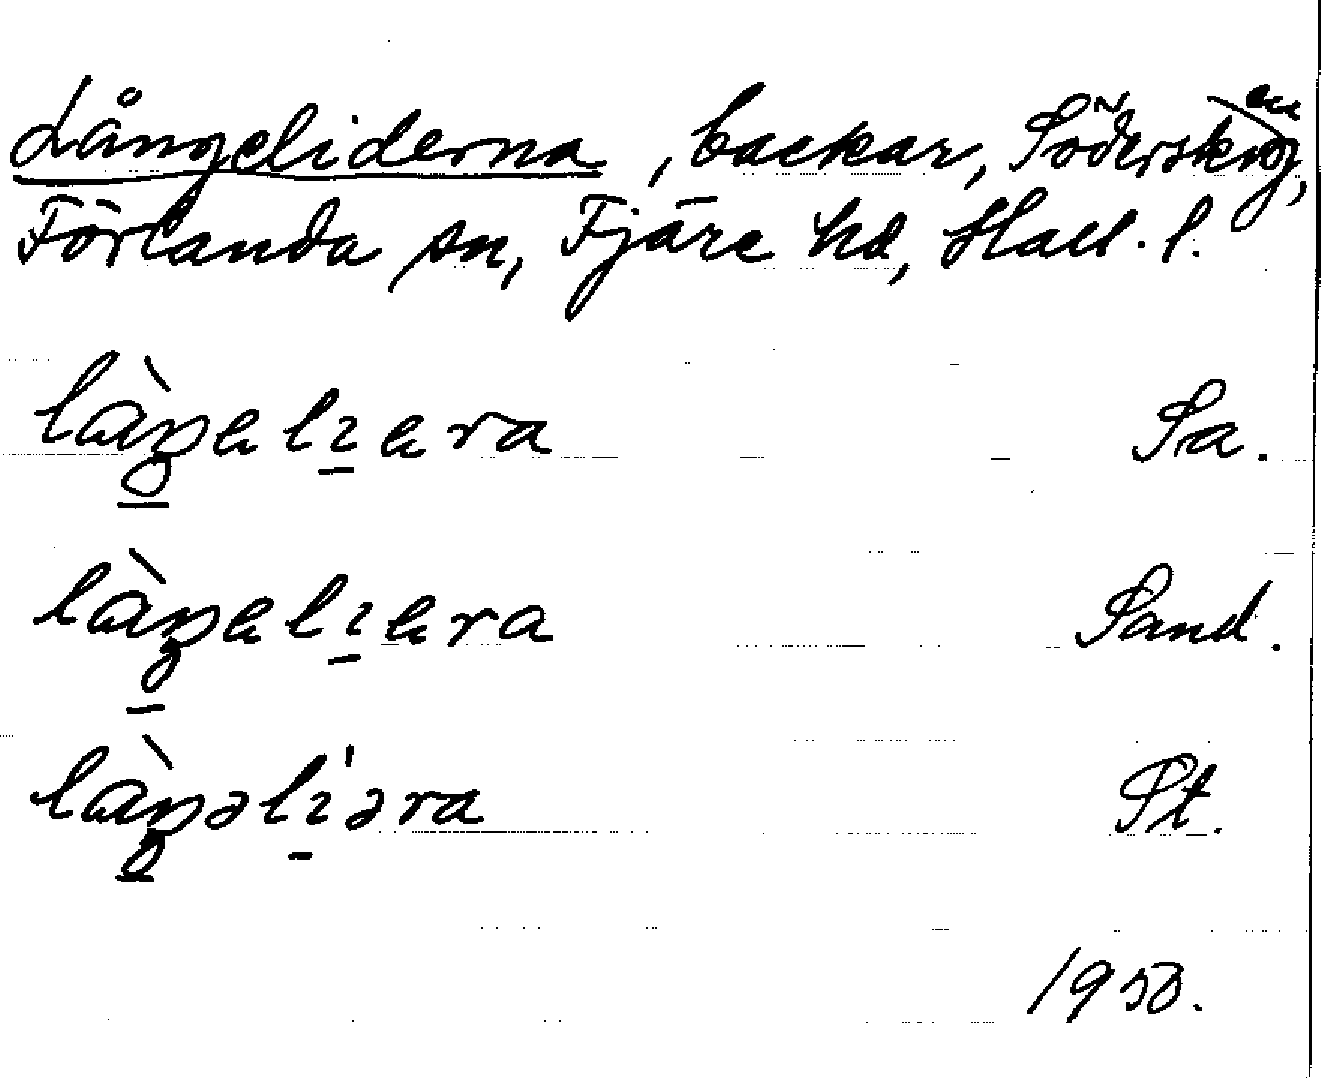 Långeliderna, backar, Söderskog,
Förlanda sn, Fjäre hd, Hall. l.
làŋəlɪəra Sa.
làŋəlɪəra Sand.
làŋəlɪ'əra St.
1950.